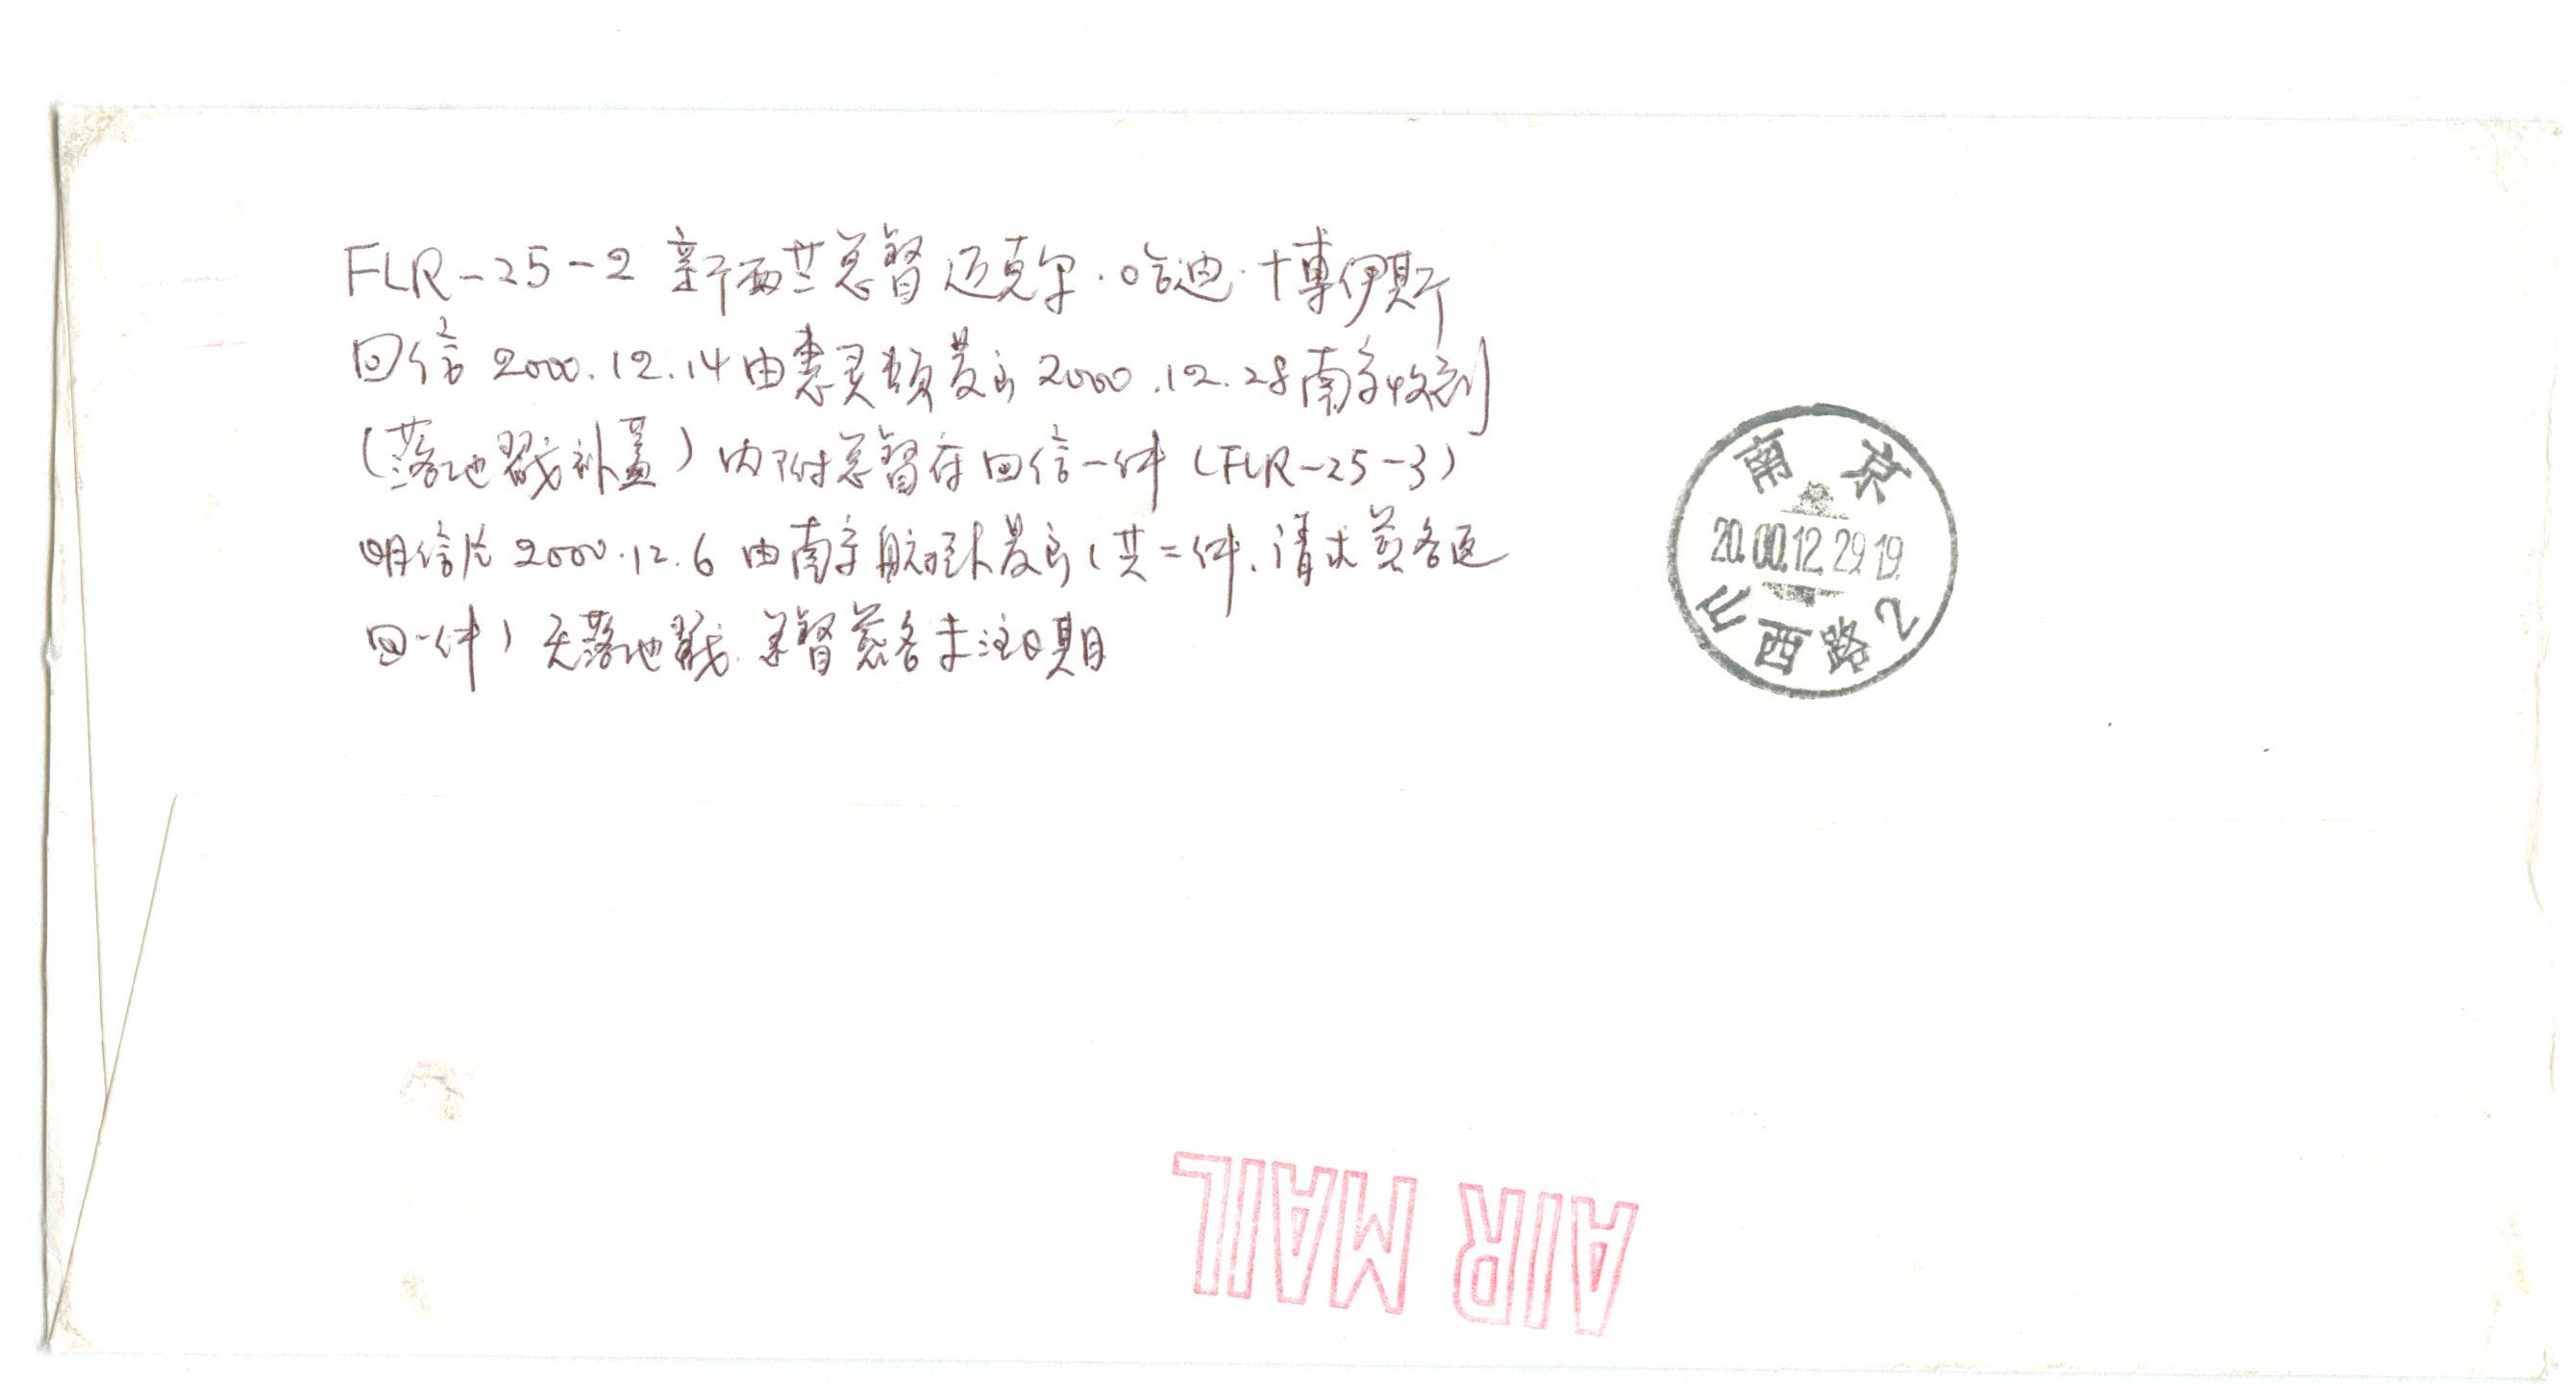 FLR-25-2 新西兰总督 迈克尔·哈迪·博伊斯
回信 2000.12.14 由惠灵顿发出 2000.12.28 南京收到
(落地戳补盖) 内附总督府回信一件 (FLR-25-3)
明信片 2000.12.6 由南京航空 发出 (共二件、请求签名返
回一件) 无落地戳. 总督签名未注日期
南京
20.00.12.29.19.
山西路2
AIR MAIL